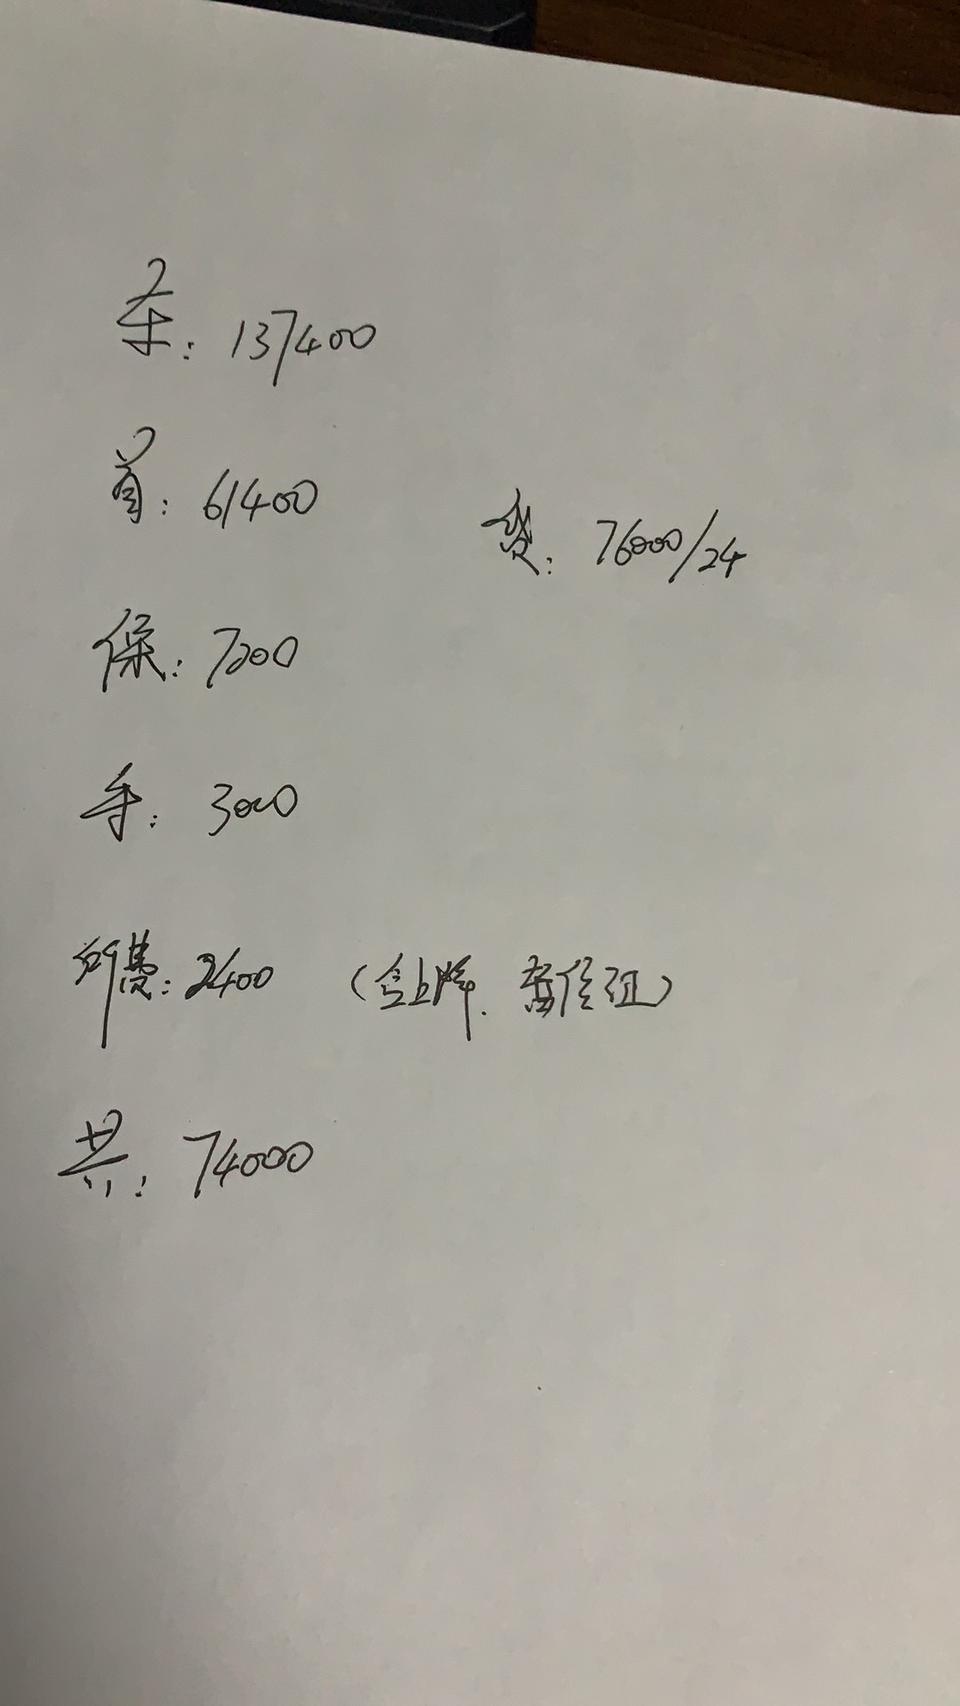 车: 137400
首: 61400
贷: 76000/24
保: 7200
手: 3000
所费: 2400 (含上牌.
共: 74000